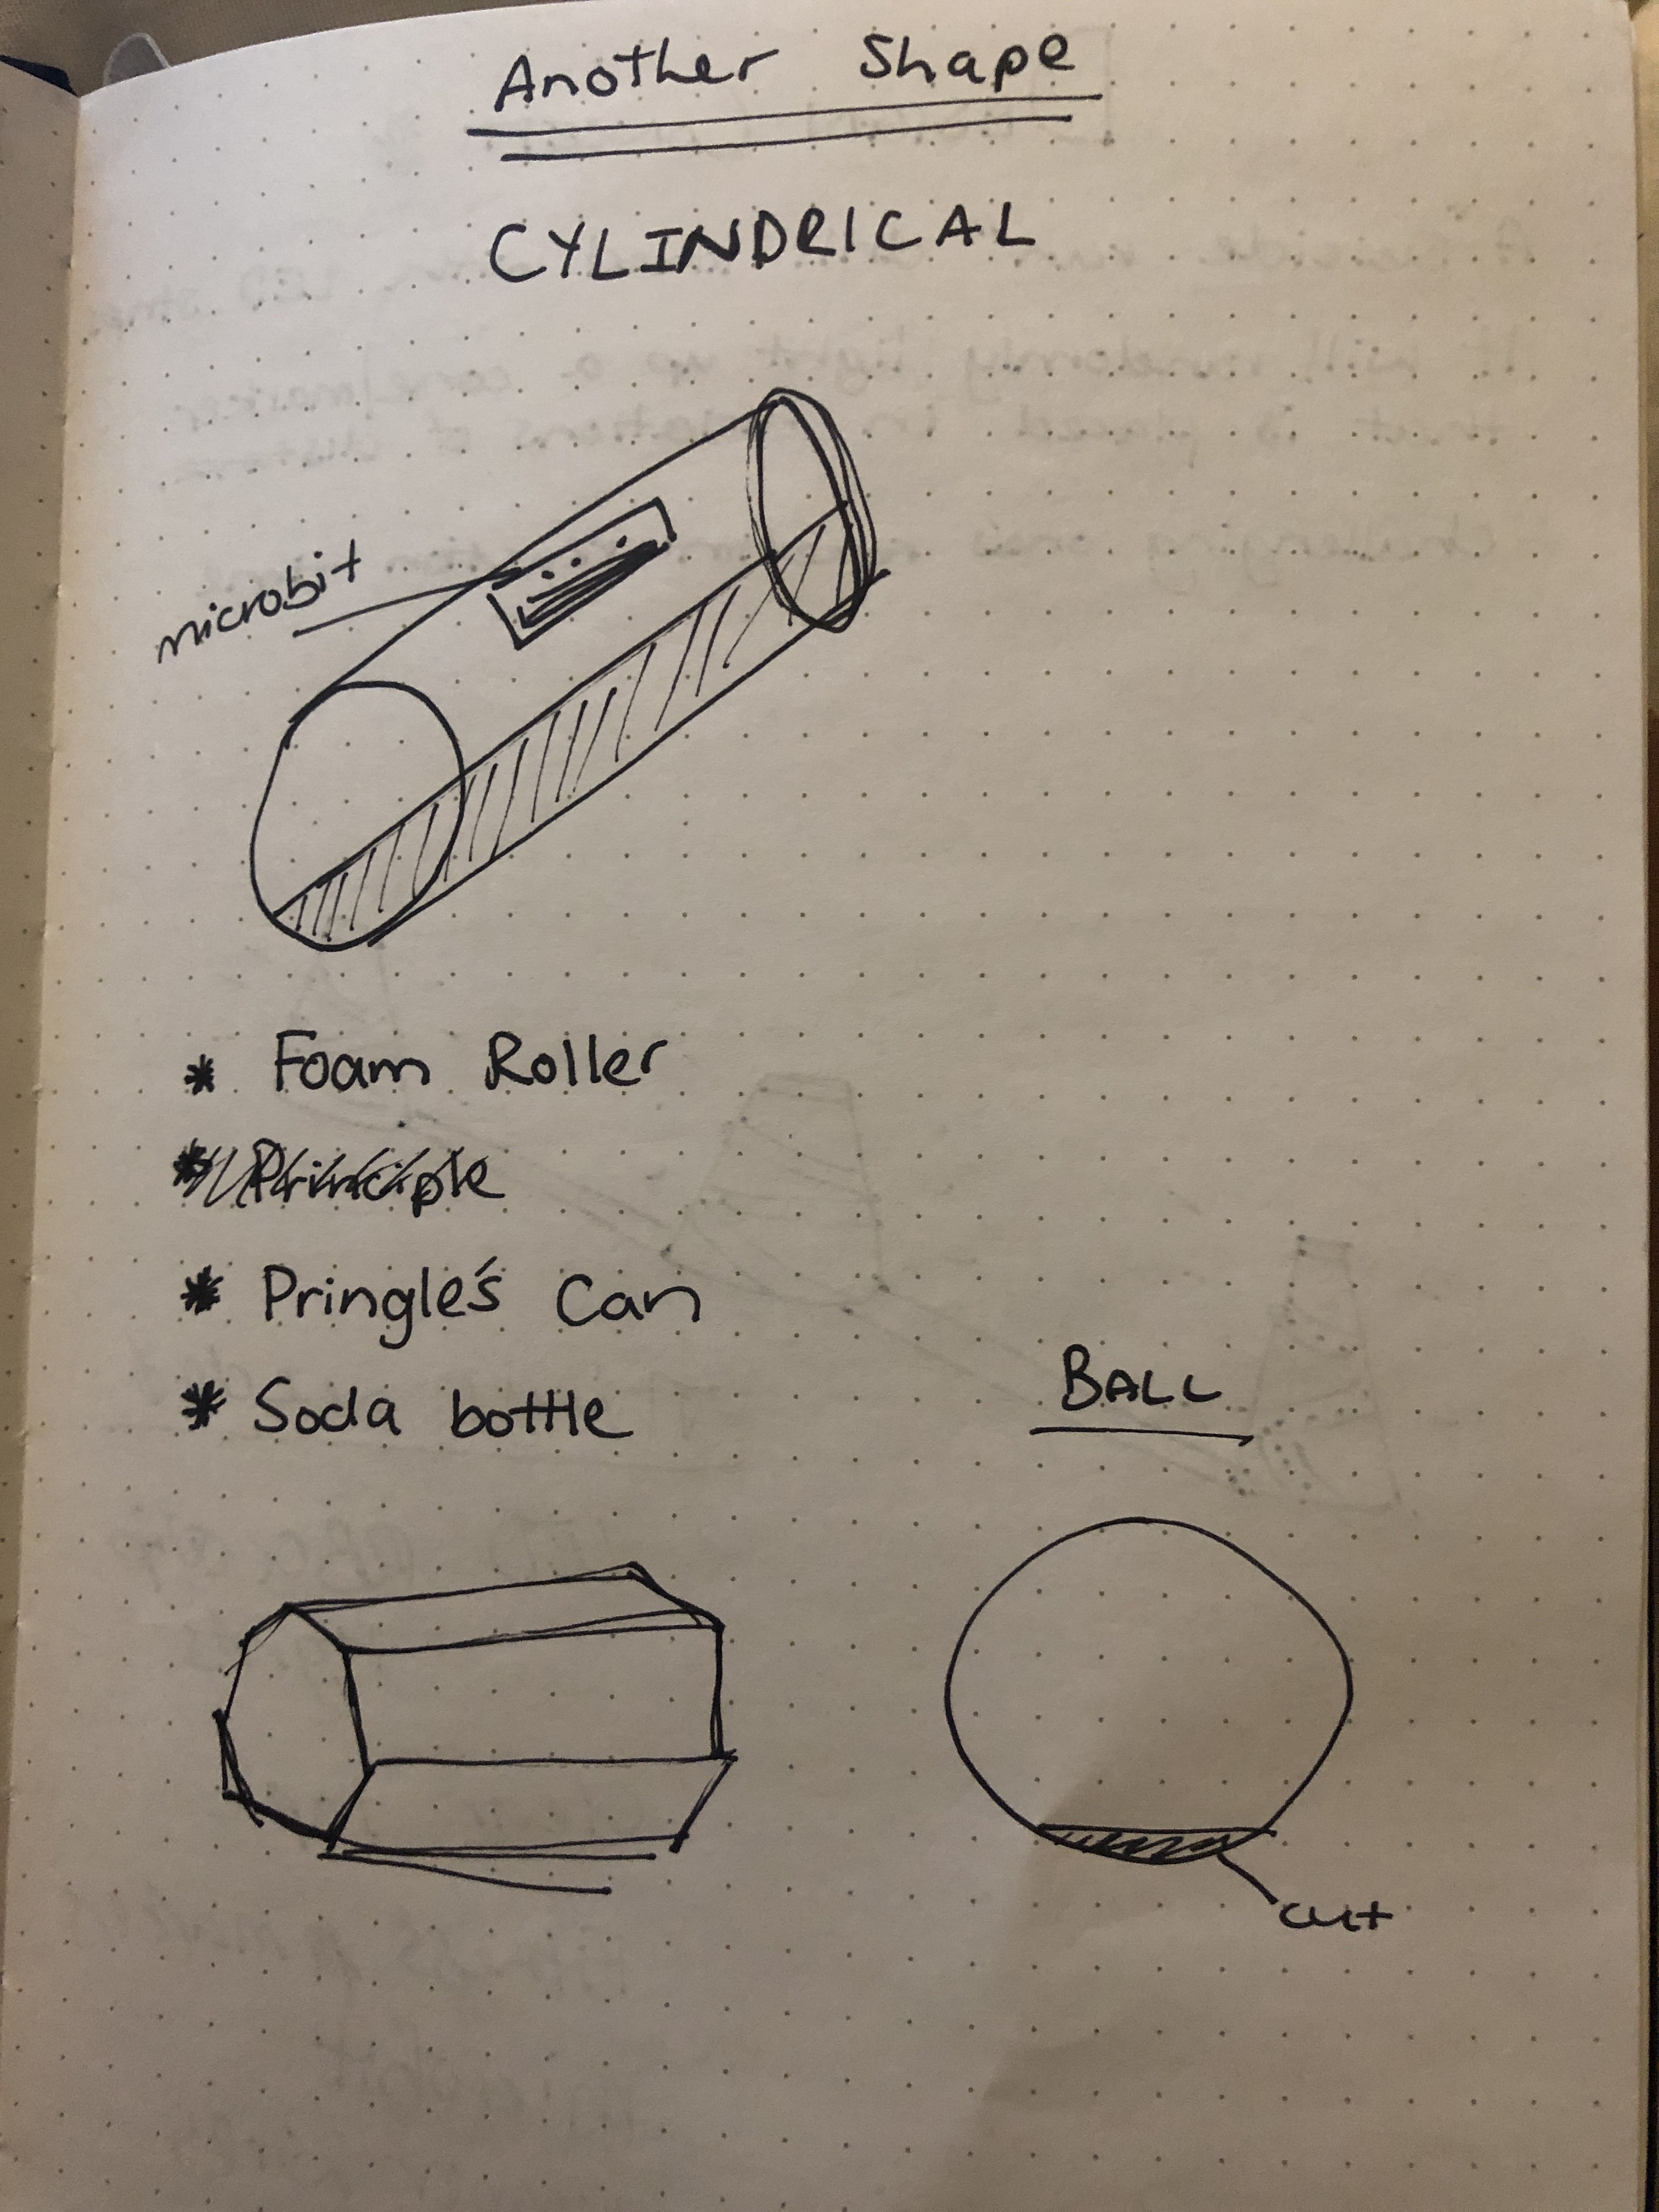 Another Shape
CYLINDRICAL
microbit
* Foam Roller
* Pringle's Can
* Soda bottle
BALL
cut